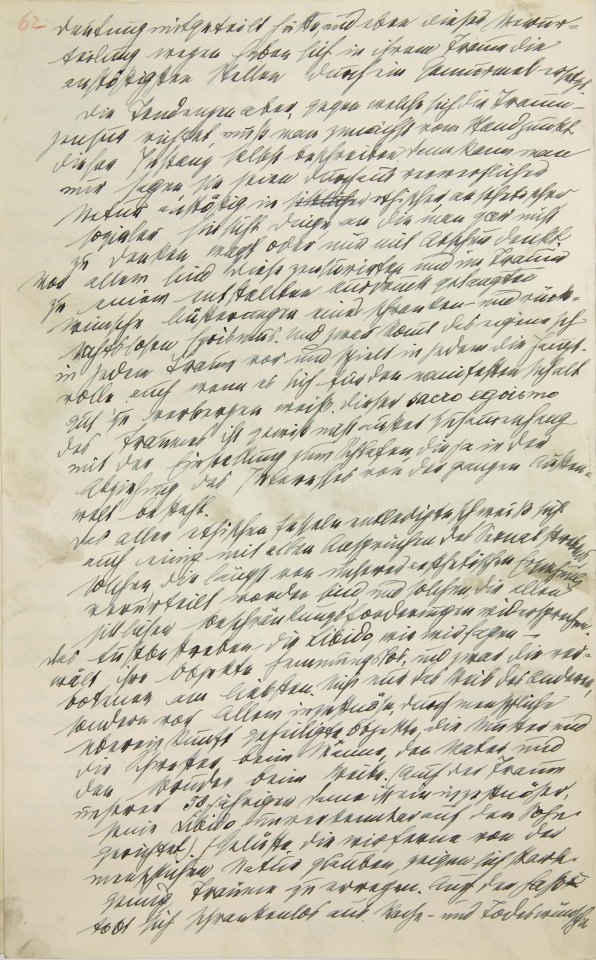 62
deutung mitgeteilt hätte, und eben dieser Verur-
teilung wegen haben sich in ihrem Traum die
anstößigsten Stellen durch ein Gemurmel ersetzt.
Die Tendenzen aber, gegen welche sich die Traum-
zensur richtet, muß man zunächst vom Standpunkt
dieser Instanz selbst beschreiben. Dann kann man
nur sagen, sie seien durchaus verwerflicher
Natur, anstößig in ethischer, aesthetischer
sozialer Hinsicht, Dinge, an die man gar nicht
zu denken wagt oder nur mit Abscheu denkt.
Vor allem sind diese zensurirten und im Traum
zu einem entstellten Ausdruck gelangten
Wünsche Äußerungen eines schranken- und rück-
sichtslosen Egoismus. Und zwar komt das eigene Ich
in jedem Traum vor und spielt in jedem die Haupt-
rolle auch wenn es sich für den manifesten Inhalt
gut zu verbergen weiß. Dieser sacro egoismo
des Traumes ist gewiß nicht außer Zusammenhang
mit der Einstellung zum Schlafen, die ja in der
Abziehung des Interesses von der ganzen Außen-
welt besteht.
Das aller ethischen Fesseln entledigte Ich weiß sich
auch einig mit allen Ansprüchen des Sexualstrebens
solchen, die längst von unserer aesthetischen Erziehung
verurteilt worden sind und solchen, die allen
sittlichen Beschränkungsforderungen widersprechen.
Das Lustbestreben die Libido, wie wir sagen –
wält ihre Objekte hemmungslos, und zwar die ver-
botenen am liebsten. Nicht nur das Weib des Anderen,
sondern vor Allem inzestuöse, durch menschliche
Übereinkunft geheiligte Objekte, die Mutter und
die Schwester beim Manne, den Vater und
den Bruder beim Weibe. (Auch der Traum
unserer 50jährigen Dame ist ein inzestuöser,
seine Libido unverkennbar auf den Sohn
gerichtet.) Gelüste, die wir ferne von der
menschlichen Natur glauben, zeigen sich stark
genug, Träume zu erregen. Auch der Haß
tobt sich schrankenlos aus. Rache- und Todeswünsche